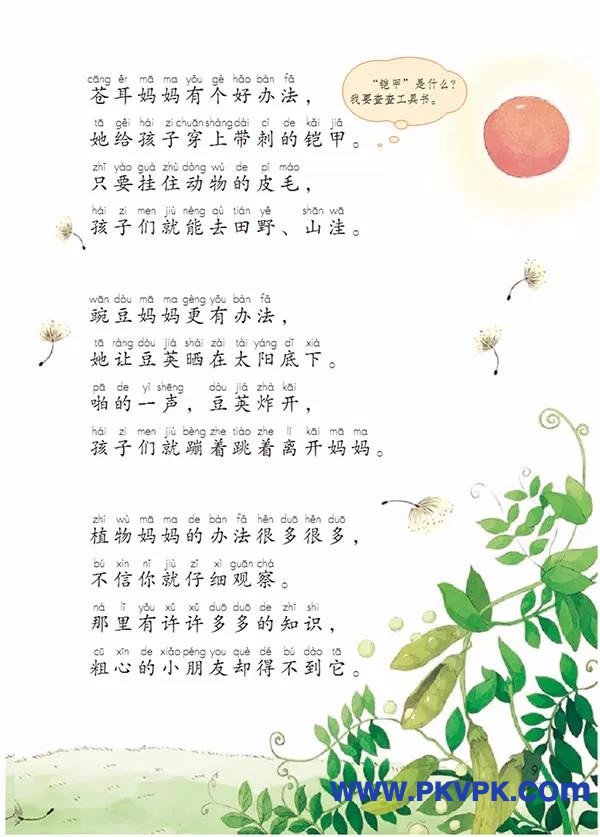 cāng ěr mā ma yǒu gè hǎo bàn fǎ
苍耳妈妈有个好办法，
“铠甲”是什么？
我要查查工具书。
tā gěi hái zi chuān shàng dài cì de kǎi jiǎ
她给孩子穿上带刺的铠甲。
zhǐ yào guà zhù dòng wù de pí máo
只要挂住动物的皮毛，
hái zi men jiù néng qù tián yě shān wā
孩子们就能去田野、山洼。
wān dòu mā ma gèng yǒu bàn fǎ
豌豆妈妈更有办法，
tā ràng dòu jiá shài zài tài yáng dǐ xià
她让豆荚晒在太阳底下。
pā de yì shēng dòu jiá zhà kāi
啪的一声，豆荚炸开，
hái zi men jiù bèng zhe tiào zhe lí kāi mā ma
孩子们就蹦着跳着离开妈妈。
zhí wù mā ma de bàn fǎ hěn duō hěn duō
植物妈妈的办法很多很多，
bú xìn nǐ jiù zǐ xì guān chá
不信你就仔细观察。
nà lǐ yǒu xǔ xǔ duō duō de zhī shi
那里有许许多多的知识，
cū xīn de xiǎo péng you què dé bú dào tā
粗心的小朋友却得不到它。
www.PKVPK.com